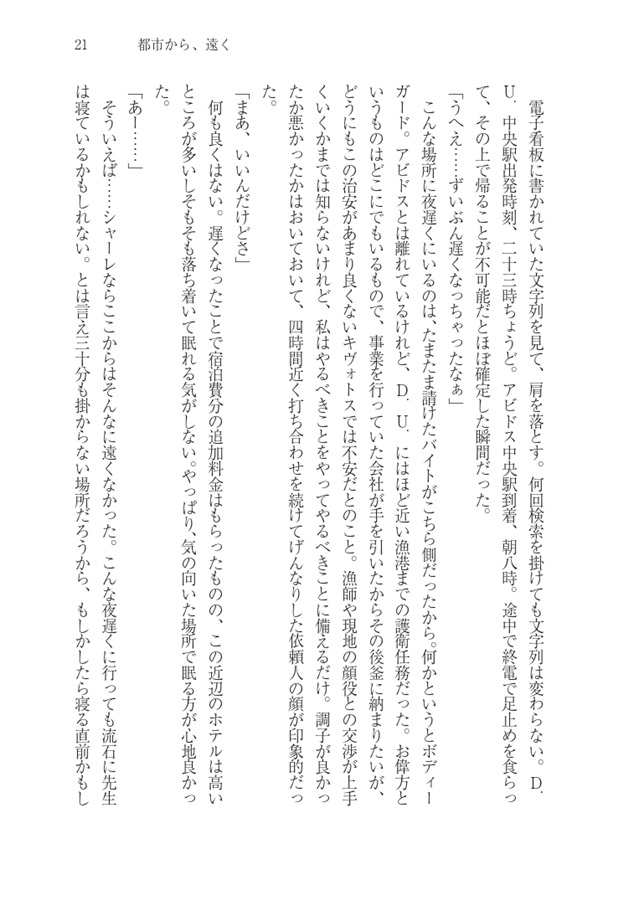 21
都市から、遠く
電子看板に書かれていた文字列を見て、肩を落とす。何回検索を掛けても文字列は変わらない。D.
U. 中央駅出発時刻、二十三時ちょうど。アビドス中央駅到着、朝八時。途中で終電で足止めを食らっ
て、その上で帰ることが不可能だとほぼ確定した瞬間だった。
「うへえ……ずいぶん遅くなっちゃったなぁ」
こんな場所に夜遅くにいるのは、たまたま請けたバイトがこちら側だったから。何かというとボディー
ガード。アビドスとは離れているけれど、D. U. にはほど近い漁港までの護衛任務だった。お偉方と
いうものはどこにでもいるもので、事業を行っていた会社が手を引いたからその後釜に納まりたいが、
どうにもこの治安があまり良くないキヴォトスでは不安だとのこと。漁師や現地の顔役との交渉が上手
くいくかまでは知らないけれど、私はやるべきことをやってやるべきことに備えるだけ。調子が良かっ
たか悪かったかはおいておいて、四時間近く打ち合わせを続けてげんなりした依頼人の顔が印象的だっ
た。
「まあ、いいんだけどさ」
何も良くはない。遅くなったことで宿泊費分の追加料金はもらったものの、この近辺のホテルは高い
ところが多いしそもそも落ち着いて眠れる気がしない。やっぱり、気の向いた場所で眠る方が心地良かっ
た。
「あー……」
そういえば……シャーレならここからはそんなに遠くなかった。こんな夜遅くに行っても流石に先生
は寝ているかもしれない。とは言え三十分も掛からない場所だろうから、もしかしたら寝る直前かもし